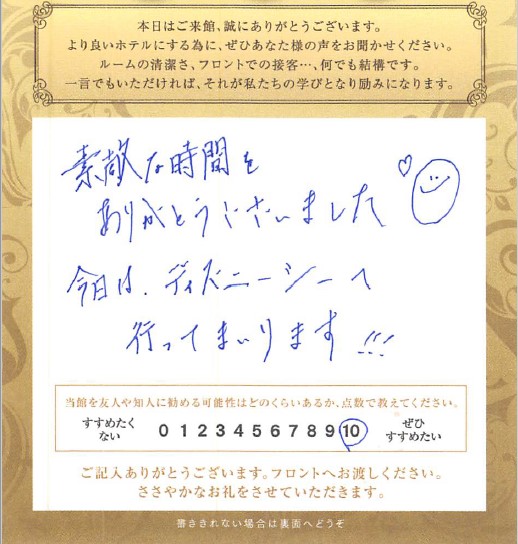 本日はご来館、誠にありがとうございます。
より良いホテルにする為に、ぜひあなた様の声をお聞かせください。
ルームの清潔さ、フロントでの接客…、何でも結構です。
一言でもいただければ、それが私たちの学びとなり励みになります。
素敵な時間を
ありがとうございました
今日は、ディズニーシーへ
行ってまいります!!!
当館を友人や知人に勧める可能性はどのくらいあるか、点数で教えてください。
すすめたくない 0 1 2 3 4 5 6 7 8 9 10 ぜひすすめたい
ご記入ありがとうございます。フロントへお渡しください。
ささやかなお礼をさせていただきます。
書ききれない場合は裏面へどうぞ